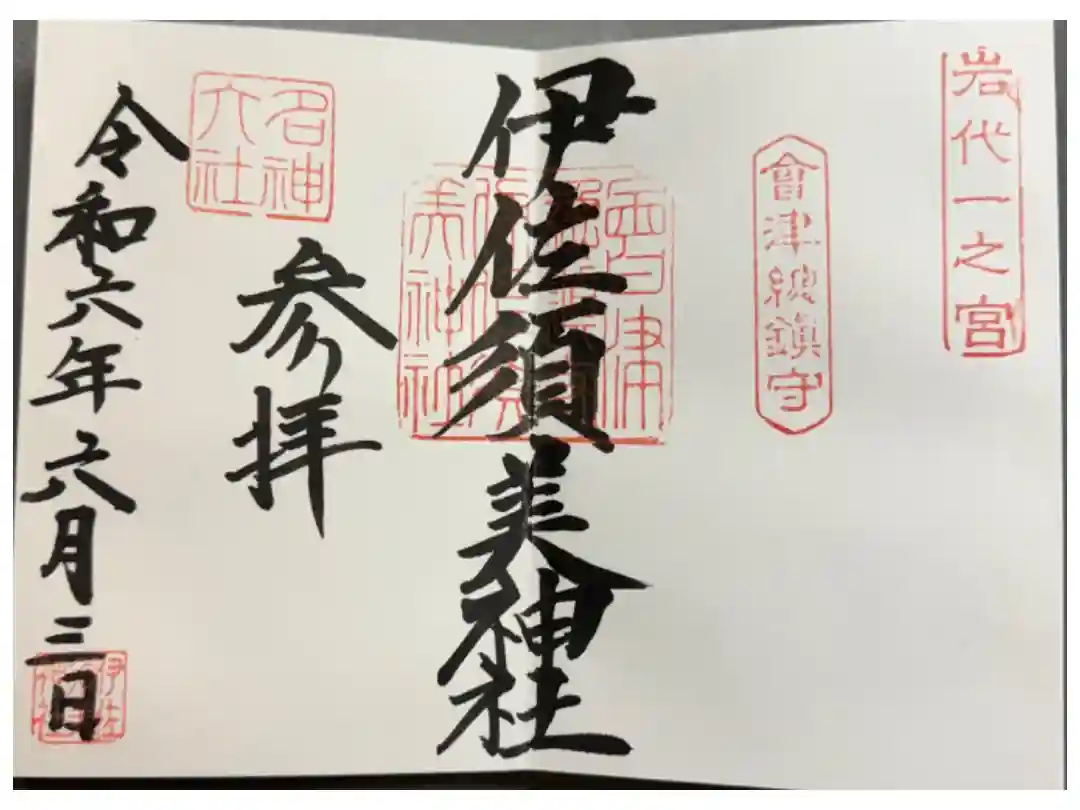 岩代一之宮
會津總鎮守
伊佐須美神社
名神
六社
参拝
令和六年六月三日
伊佐